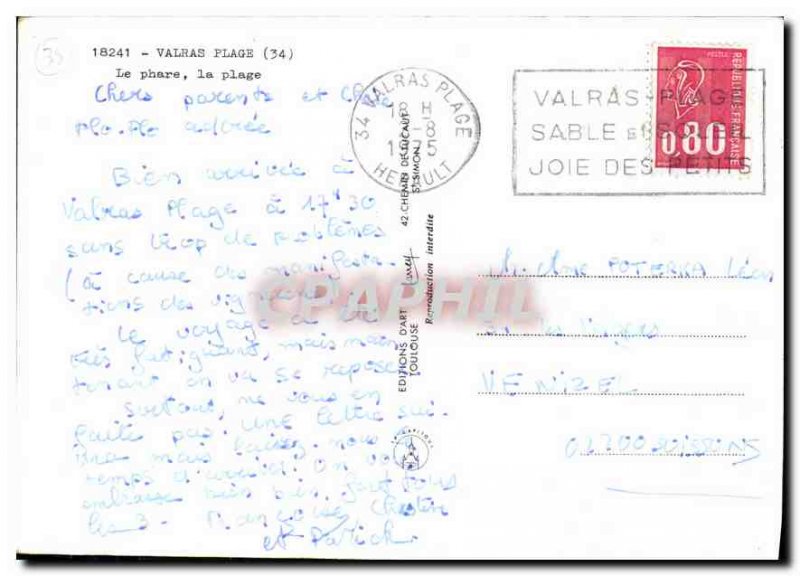 18241 - VALRAS PLAGE (34)
Le phare, la plage
Chers parents et
adorée
Bien arrivée à
Valras Plage à 17h30
sans trop de problèmes
(à cause des manifesta-
tions des vignerons)
Le voyage a été
très fatiguant, mais main
tenant on va se reposer.
Surtout, ne vous en
faite pas. Une lettre sui-
vra mais laissez nous le
temps d'arrivé. On vous
embrasse bien bien fort tous
les 3. Françoise, Christine
et Patrick.
34 VALRAS PLAGE
H
-8
1975
HERAULT
VALRAS-PLAGE
SABLE et SOLEIL
JOIE DES PETITS
POSTES
REPUBLIQUE FRANÇAISE
0,80
42 CHEMIN DE LUCAUT
ST-SIMON
EDITIONS D'ART
TOULOUSE
Reproduction interdite
CPAPHIL
M. Mme POTERKA Léon
VENIZEL
02200 Soissons